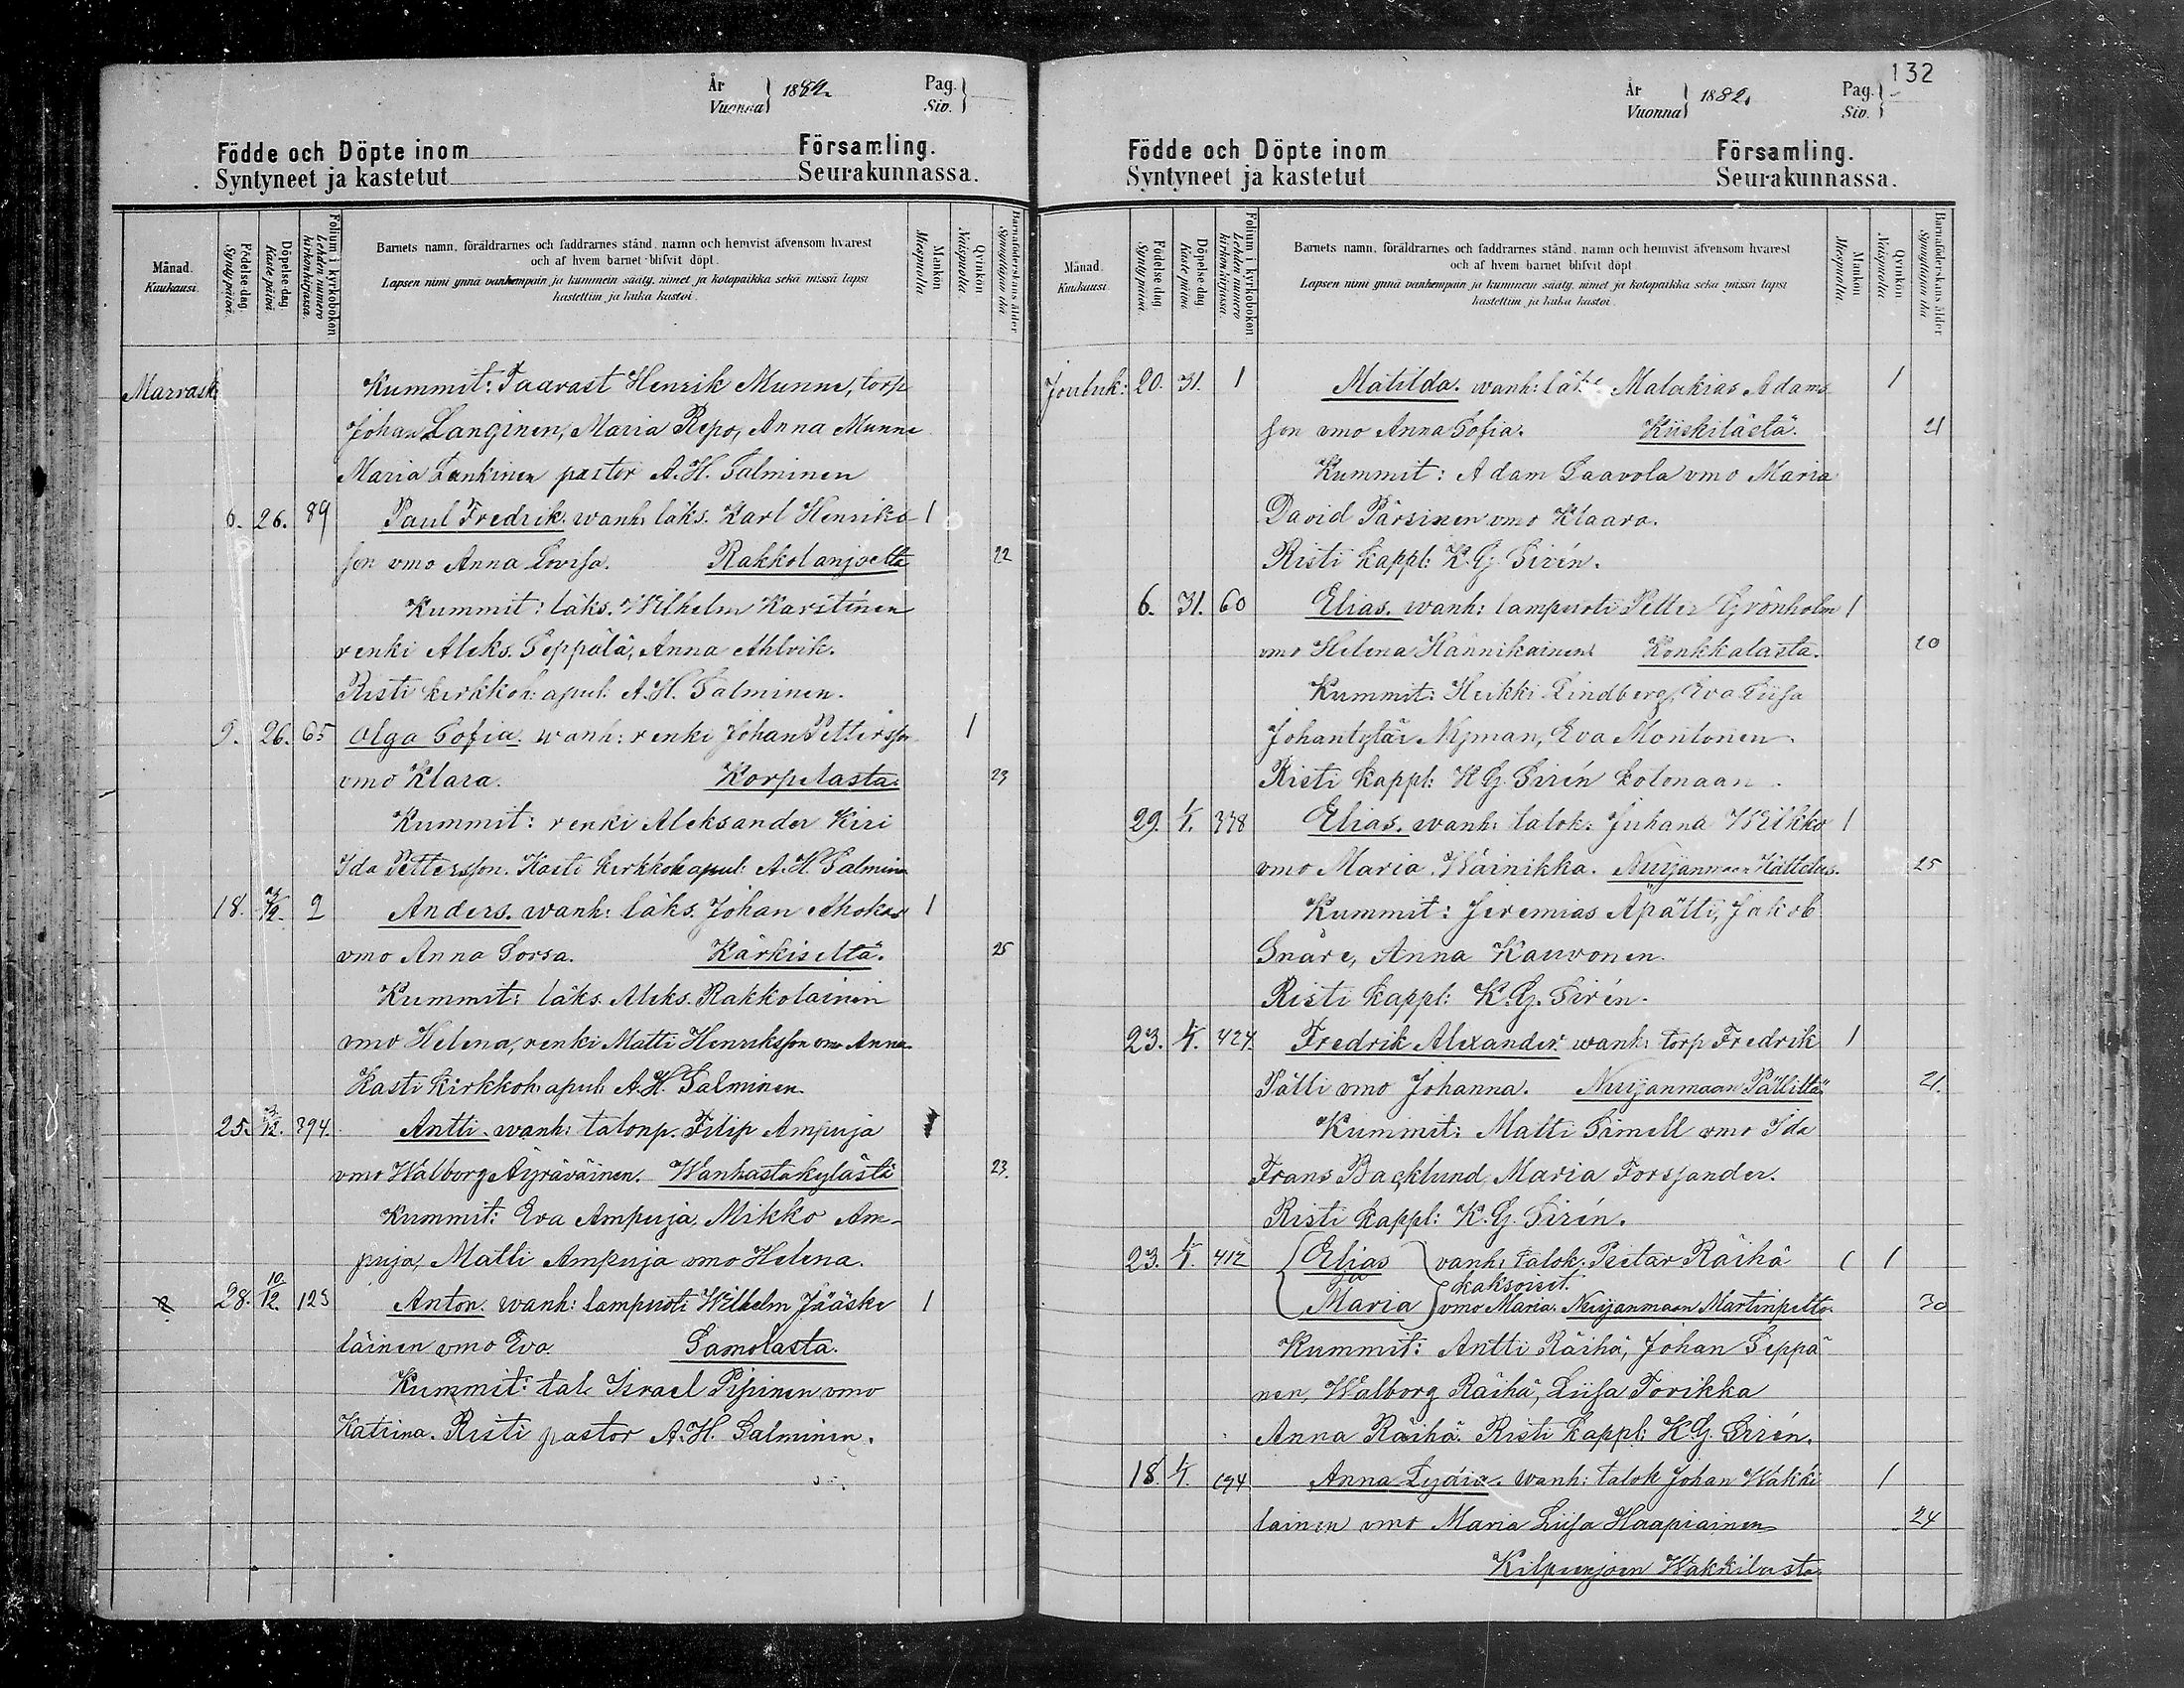 132
År
Vuonna
1882.
Pag.
Siv.
Födde och Döpte inom Församling.
Syntyneet ja kastetut Seurakunnassa.
Månad.
Kuukausi.
Födelse dag.
Synty päivä.
Döpelse dag.
Kaste päivä.
Folium i kyrkoboken
Lehden numero kirkonkirjassa.
Barnets namn, föräldrarnes och faddrarnes stånd, namn och hemvist äfvensom hvarest
och af hvem barnet blifvit döpt.
Lapsen nimi ynnä vanhempain ja kummein sääty, nimet ja kotopaikka sekä missä lapsi
kastettiin ja kuka kastoi.
Mankön
Miespuolta
Qvinkön
Naispuolta
Barnaföderskans ålder
Synnyttäjän ikä
Marrask: Kummit: Henrik Munne, torp
Johan Langinen, Maria Repo, Anna Munne
Maria Lankinen pastor A. H. Salminen
6. 26. 89 Paul Fredrik. wanh: läks. Karl Henriks- 1
son vmo Anna Lovisa. Rakkolanjoelta 22
Kummit: läks. Wilhelm Karstinen
renki Aleks. Seppälä, Anna Ahlvik.
Risti kirkkoh: apul: A. H. Salminen.
9. 26. 65 Olga Sofia. wanh: renki Johan Pettersson 1
vmo Klara. Korpelasta. 23
Kummit: renki Aleksander Kiri
Ida Pettersson. Kasti kirkkoh apul: A. H. Salminen
18. 2 Anders. wanh: läks. Johan Ahokas 1
vmo Anna Sorsa. Kärkiseltä. 25
Kummit: läks. Aleks. Rakkolainen
vmo Helena, renki Matti Henriksson vmo Anna
Kasti kirkkoh. apul: A. H. Salminen.
25. 3/12. 394. Antti. wanh: talonp. Filip Ampuja 1
vmo Walborg Äyräväinen. Wanhastakylästä 23.
Kummit: Eva Ampuja, Mikko Am-
puja, Matti Ampuja vmo Helena.
28. 10/12. 123 Anton. wanh: lampuoti Wilhelm Jääske 1
läinen vmo Eva. Samolasta.
Kummit: tal: Israel Pipinen vmo
Katrina. Risti pastor A. H. Salminen.
År
Vuonna
1882.
Pag.
Siv.
Födde och Döpte inom Församling.
Syntyneet ja kastetut Seurakunnassa.
Månad.
Kuukausi.
Födelse dag.
Synty päivä.
Döpelse dag.
Kaste päivä.
Folium i kyrkoboken
Lehden numero kirkonkirjassa.
Barnets namn, föräldrarnes och faddrarnes stånd, namn och hemvist äfvensom hvarest
och af hvem barnet blifvit döpt.
Lapsen nimi ynnä vanhempain ja kummein sääty, nimet ja kotopaikka sekä missä lapsi
kastettiin ja kuka kastoi.
Mankön
Miespuolta.
Qvinkön
Naispuolta
Barnaföderskans ålder
Synnyttäjän ikä
Jouluk: 20. 31. 1 Matilda. wanh: läks. Malakias Adams 1
son vmo Anna Sofia. Kiiskilästä. 21
Kummit: Adam Saavola vmo Maria
David Pärsinen vmo Klaara.
Risti kappl: K. G. Sirén.
6. 31. 60 Elias. wanh: lampuoti Petter Grönholm 1
vmo Helena Hännikainen Konkkalasta. 20
Kummit: Heikki Lindberg, Eva Liisa
Johantytär Nyman, Eva Montonen.
Risti kappl: K G. Sirén kotonaan.
29. 4. 338 Elias. wanh: talok: Juhana Wilkko 1
vmo Maria Wäinikka. Nuijanmaan 25
Kummit: Jeremias Äpätti, Jakob
Snäre, Anna Kauvonen.
Risti kappl: K. G. Sirén.
23. 4. 424. Fredrik Alexander. wanh: torp Fredrik 1
Pätli vmo Johanna. Nuijanmaan Pätliltä 21.
Kummit: Matti Simell vmo Ida
Frans Backlund, Maria Forssander.
Risti kappl: K. G. Sirén.
23. 4. 412 Elias vanh: talok: Peetar Räihä 1 1
ja kaksoiset.
Maria vmo Maria. Nuijanmaan Martinpelto. 30
Kummit: Antti Räihä, Johan Seppä
nen, Walborg Räihä, Liisa Torikka
Anna Räihä. Risti kappl: K. G. Sirén.
18. 4. 194 Anna Lydia. wanh: talok Johan Wäkki 1
lainen vmo Maria Liisa Haapiainen 24
Kilpeenjoen Wakkilasta